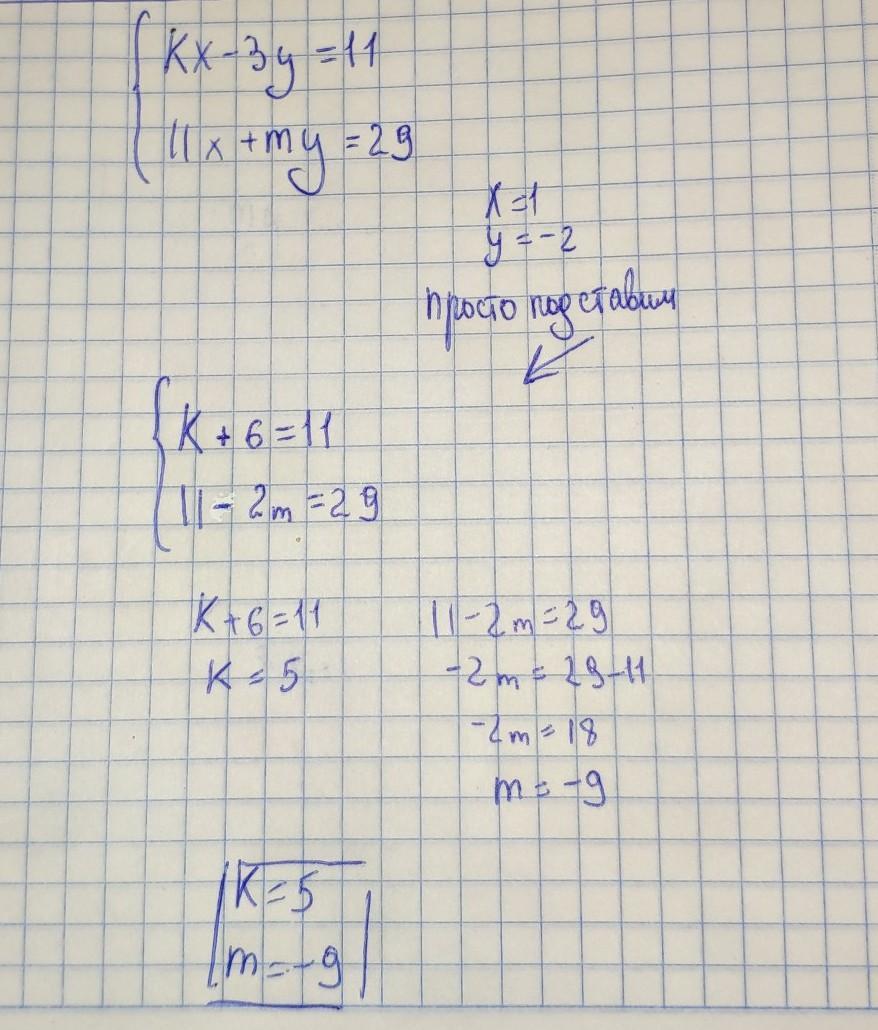 Kx-3y=11
11x+my=29
x=1
y=-2
просто подставим
K+6=11
11-2m=29
K+6=11
K=5
11-2m=29
-2m=29-11
-2m=18
m=-9
K=5
m=-9